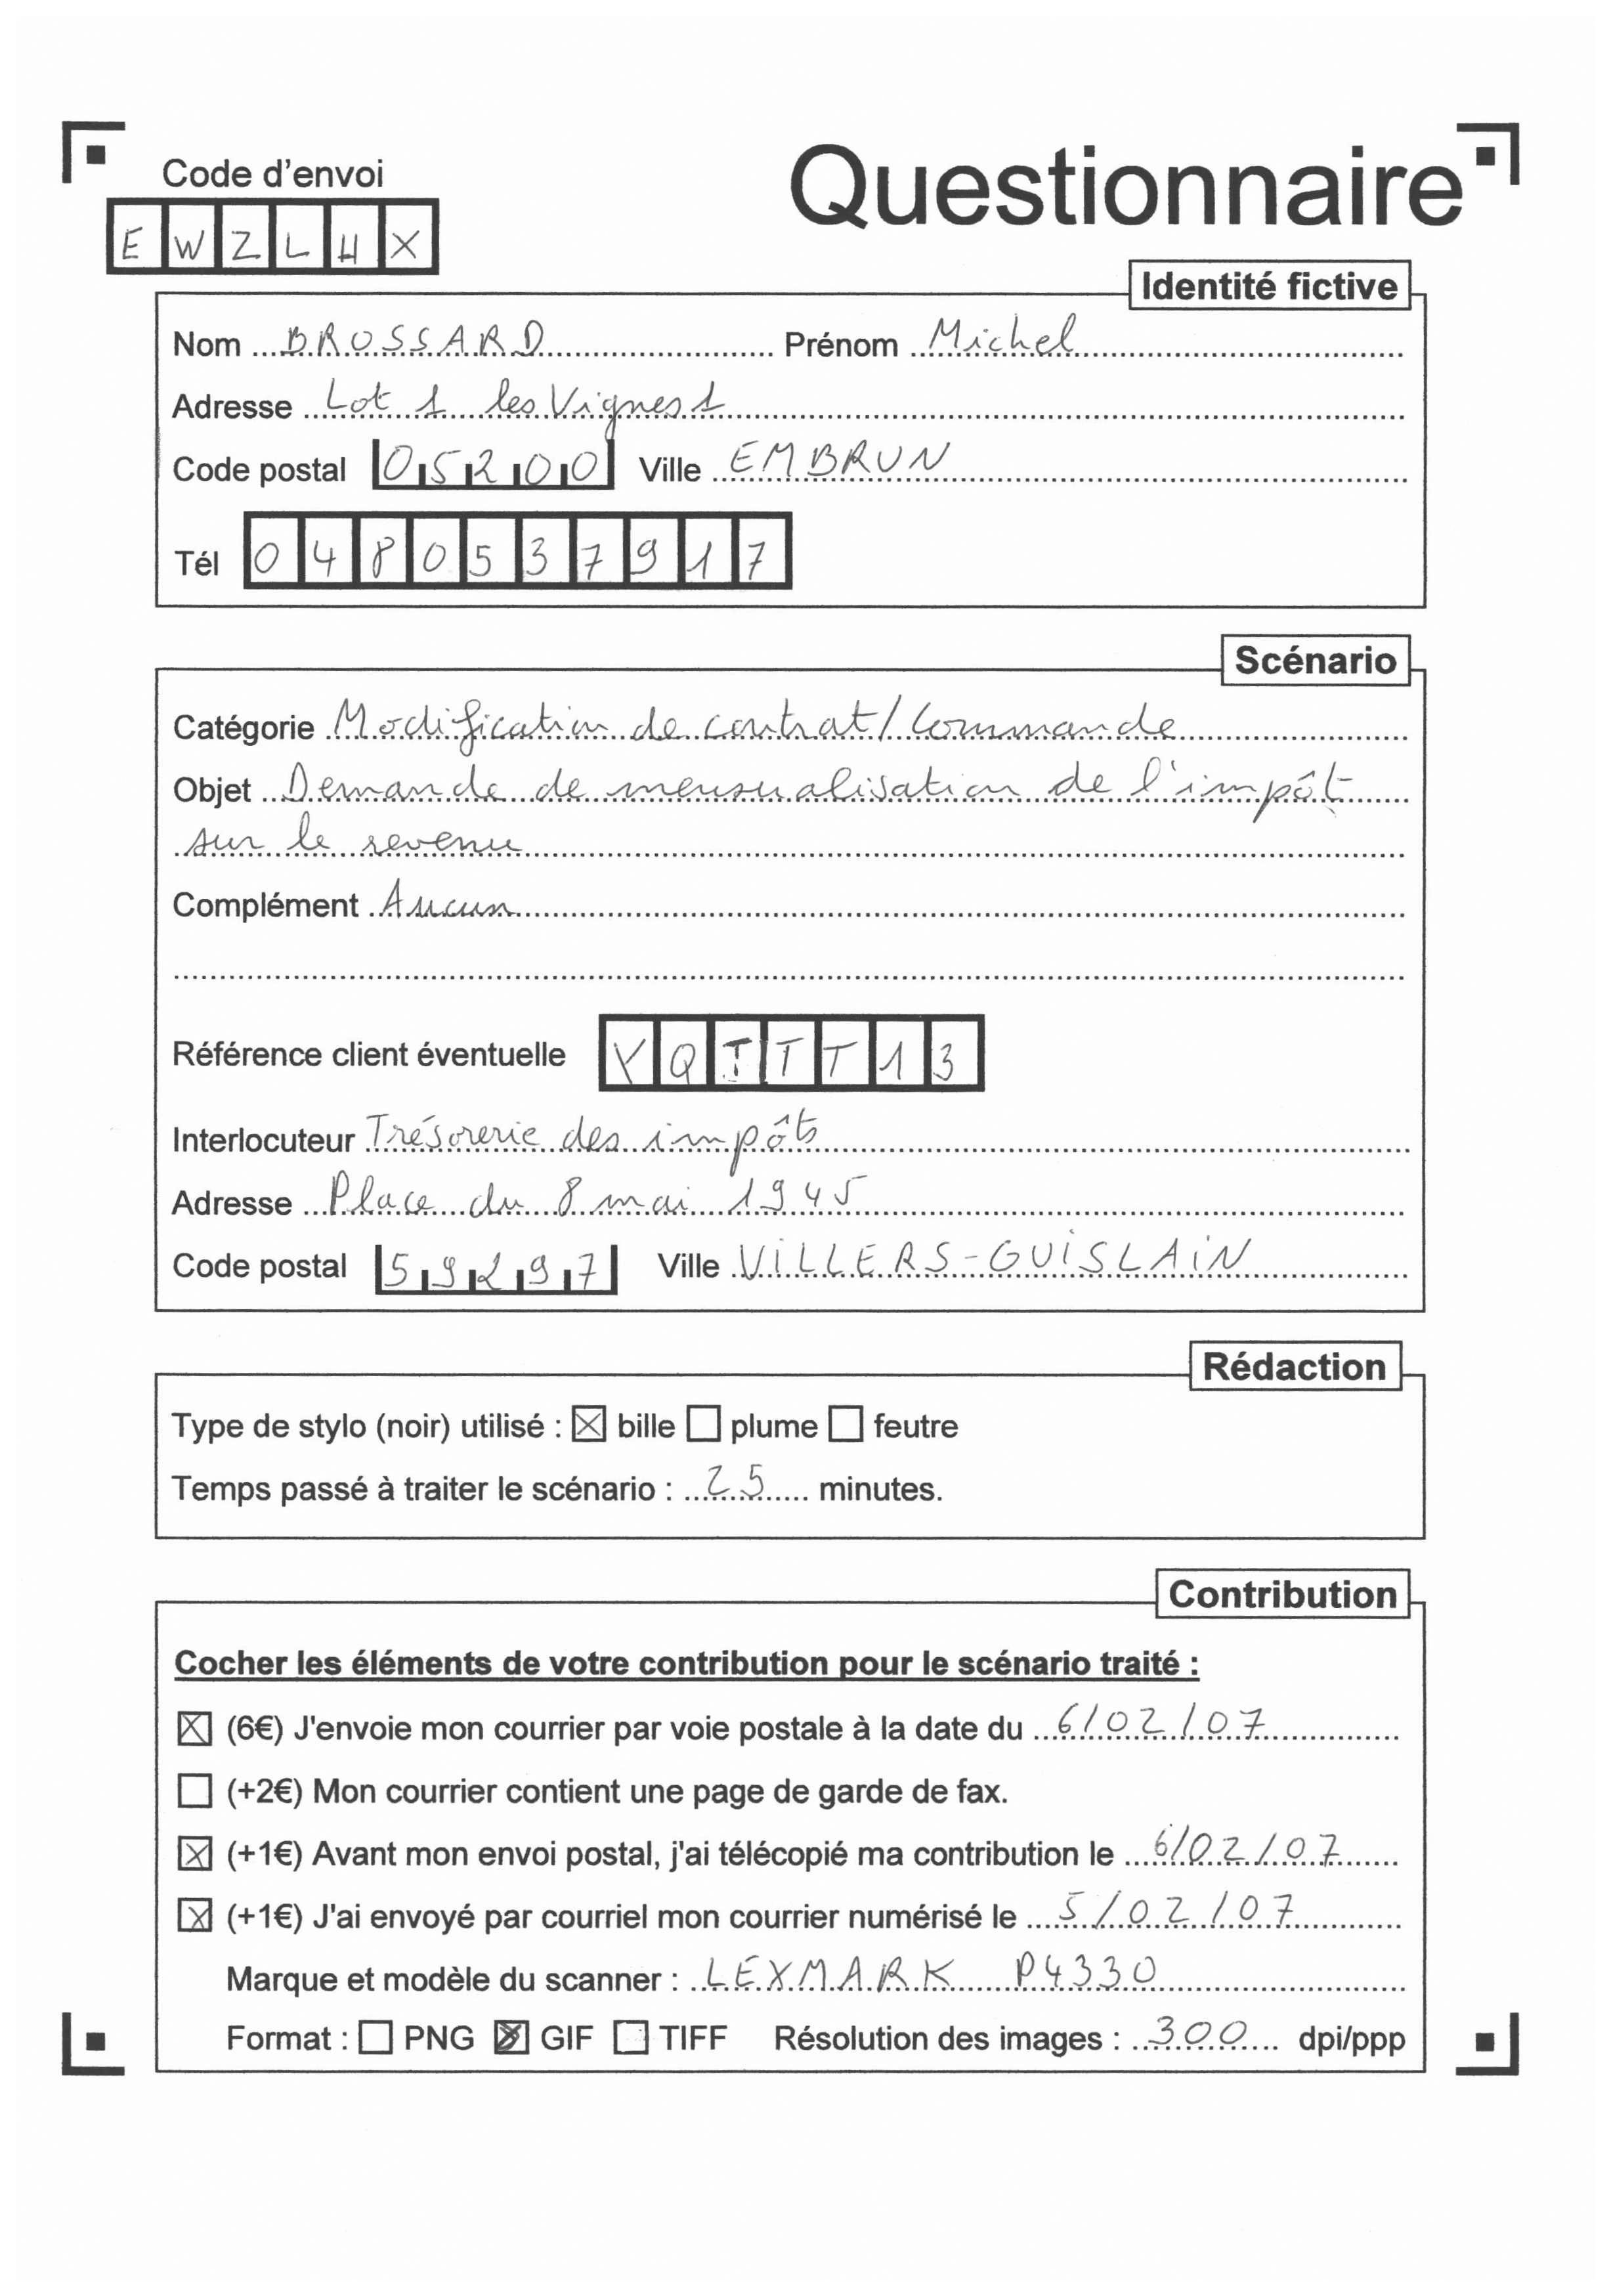 Code d'envoi
Questionnaire
E W Z L H X
Identité fictive
Nom BROSSARD Prénom Michel
Adresse Lot 1 les Vignes 1
Code postal 05200 Ville EMBRUN
Tél 0480537917
Scénario
Catégorie Modification de contrat/Commande
Objet Demande de mensualisation de l'impôt
sur le revenu
Complément Aucun
Référence client éventuelle YQITT13
Interlocuteur Trésorerie des impôts
Adresse Place du 8 mai 1945
Code postal 59297 Ville VILLERS-GUISLAIN
Rédaction
Type de stylo (noir) utilisé : ☒ bille ☐ plume ☐ feutre
Temps passé à traiter le scénario : 25 minutes.
Contribution
Cocher les éléments de votre contribution pour le scénario traité :
☒ (6€) J'envoie mon courrier par voie postale à la date du 6/02/07
☐ (+2€) Mon courrier contient une page de garde de fax.
☒ (+1€) Avant mon envoi postal, j'ai télécopié ma contribution le 6/02/07
☒ (+1€) J'ai envoyé par courriel mon courrier numérisé le 5/02/07
Marque et modèle du scanner : LEXMARK P4330
Format : ☐ PNG ☒ GIF ☐ TIFF Résolution des images : 300 dpi/ppp